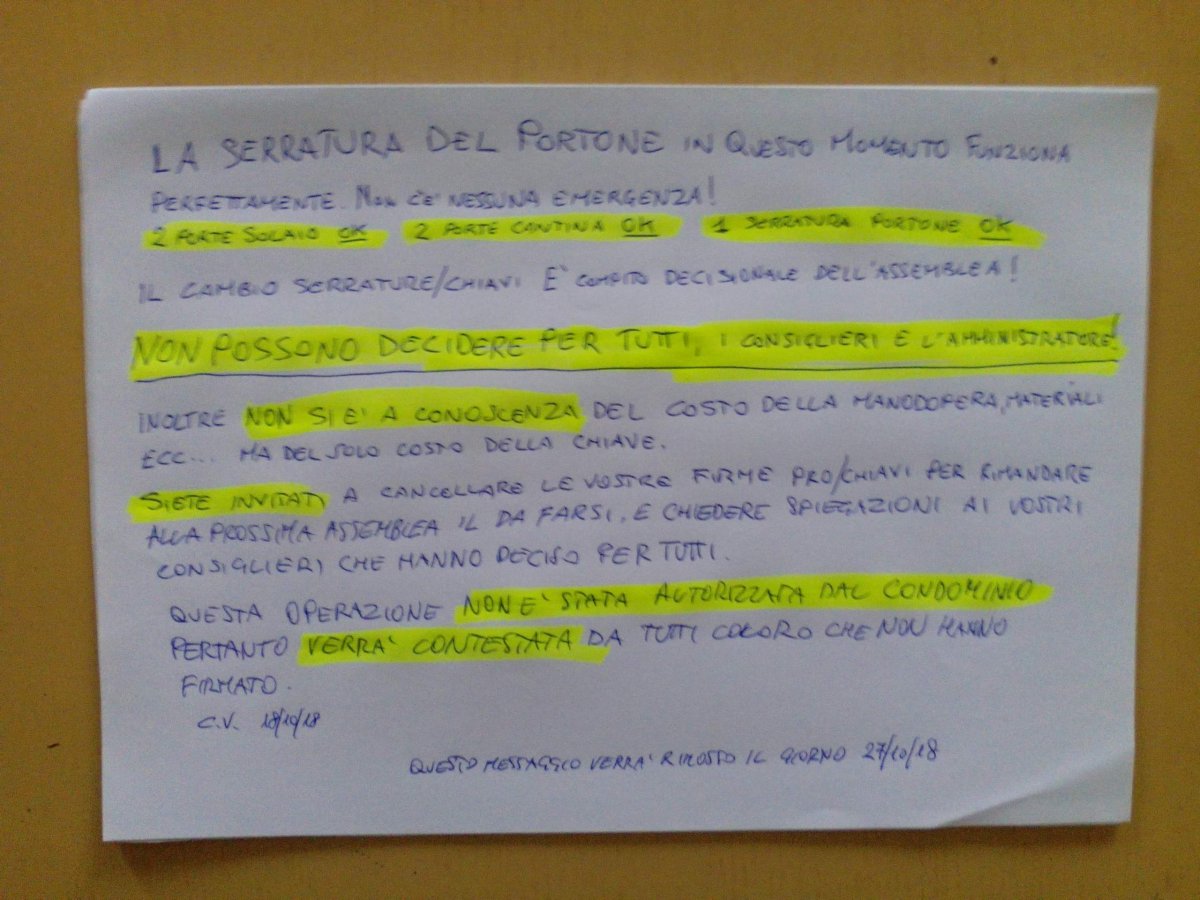 LA SERRATURA DEL PORTONE IN QUESTO MOMENTO FUNZIONA
PERFETTAMENTE. NON C'E' NESSUNA EMERGENZA!
2 PORTE SOLAIO OK 2 PORTE CANTINA OK 1 SERRATURA PORTONE OK
IL CAMBIO SERRATURE/CHIAVI E' COMPITO DECISIONALE DELL'ASSEMBLEA!
NON POSSONO DECIDERE PER TUTTI, I CONSIGLIERI E L'AMMINISTRATORE!
INOLTRE NON SI E' A CONOSCENZA DEL COSTO DELLA MANODOPERA, MATERIALI
ECC... MA DEL SOLO COSTO DELLA CHIAVE.
SIETE INVITATI A CANCELLARE LE VOSTRE FIRME PRO/CHIAVI PER RIMANDARE
ALLA PROSSIMA ASSEMBLEA IL DA FARSI, E CHIEDERE SPIEGAZIONI AI VOSTRI
CONSIGLIERI CHE HANNO DECISO PER TUTTI.
QUESTA OPERAZIONE NON E' STATA AUTORIZZATA DAL CONDOMINIO
PERTANTO VERRA' CONTESTATA DA TUTTI COLORO CHE NON HANNO
FIRMATO.
C.V. 18/10/18
QUESTO MESSAGGIO VERRA' RIMOSSO IL GIORNO 27/10/18